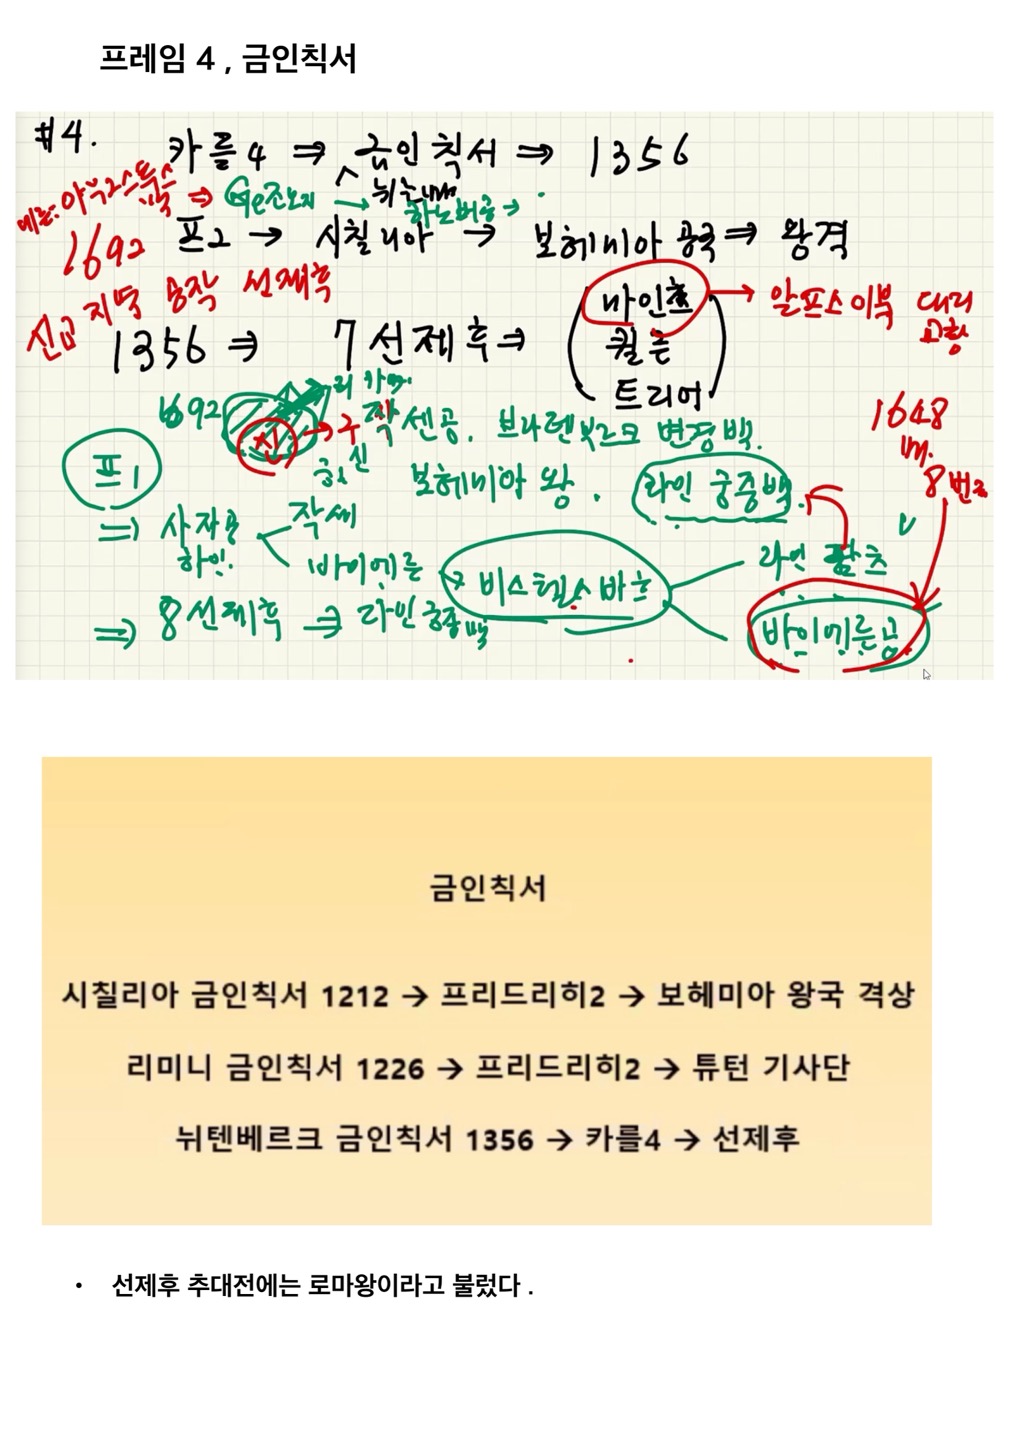 프레임 4 , 금인칙서
#4. 카를4 ⇒ 금인칙서 ⇒ 1356
아우구스투스 ⇒ → 하노버공 →
1692 프2 → 시칠리아 → 보헤미아 공국 ⇒ 왕격
신교 지역 공작 선제후
1356 ⇒ 7선제후 ⇒ (마인츠 → 알프스이북 대리
쾰른
트리어)
1692 작센공. 브란덴부르크 변경백.
1648
프1 보헤미아 왕. 라인 궁중백. 8번
⇒ 사자공 작센
하인. 바이에른 → 비스텔스바흐 라인 팔츠
⇒ 8선제후 ⇒ 라인궁중백 바이에른공.
금인칙서
시칠리아 금인칙서 1212 → 프리드리히2 → 보헤미아 왕국 격상
리미니 금인칙서 1226 → 프리드리히2 → 튜턴 기사단
뉘텐베르크 금인칙서 1356 → 카를4 → 선제후
• 선제후 추대전에는 로마왕이라고 불렀다 .